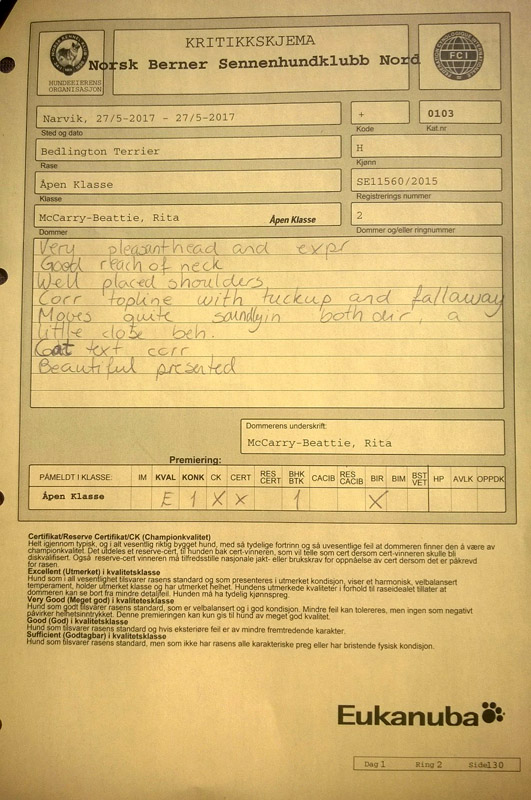 KRITIKKSKJEMA
Norsk Berner Sennenhundklubb Nord
HUNDEEIERENS
ORGANISASJON
FCI
Narvik, 27/5-2017 - 27/5-2017
+
0103
Sted og dato
Kode
Kat nr
Bedlington Terrier
H
Rase
Kjønn
Åpen Klasse
SE11560/2015
Klasse
Registrerings nummer
McCarry-Beattie, Rita
Åpen Klasse
2
Dommer
Dommer og/eller ringnummer
Very pleasant head and expr
Good reach of neck
Well placed shoulders
Corr topline with tuckup and fallaway
Moves quite soundly in both dir, a
little close beh.
Coat text corr
Beautiful presented
Dommerens underskrift:
McCarry-Beattie, Rita
Premiering:
PÅMELDT I KLASSE: IM KVAL KONK CK CERT RES CERT BHK BTK CACIB RES CACIB BIR BIM BST VET HP AVLK OPPDK
Åpen Klasse E 1 X X 1 X
Certifikat/Reserve Certifikat/CK (Championkvalitet)
Helt igjennom typisk, og i alt vesentlig riktig bygget hund, med så tydelige fortrinn og så uvesentlige feil at dommeren finner den å være av
championkvalitet. Det utdeles et reserve-cert, til hunden bak cert-vinneren, som vil telle som cert dersom cert-vinneren skulle bli
diskvalifisert. Også reserve-cert vinneren må tilfredsstille nasjonale jakt- eller brukskrav for oppnåelse av cert dersom det er påkrevd
for rasen.
Excellent (Utmerket) i kvalitetsklasse
Hund som i all vesentlighet tilsvarer rasens standard og som presenteres i utmerket kondisjon, viser et harmonisk, velbalansert
temperament, holder utmerket klasse og har utmerket helhet. Hundens utmerkede kvaliteter i forhold til raseidealet tillater at
dommeren kan se bort fra mindre detaljfeil. Hunden må ha tydelig kjønnspreg.
Very Good (Meget god) i kvalitetesklasse
Hund som godt tilsvarer rasens standard, som er velbalansert og i god kondisjon. Mindre feil kan tolereres, men ingen som negativt
påvirker helhetsinntrykket. Denne premieringen kan kun gis til hund av meget god kvalitet.
Good (God) i kvalitetsklasse
Hund som tilsvarer rasens standard og hvis eksteriøre feil er av mindre fremtredende karakter.
Sufficient (Godtagbar) i kvalitetsklasse
Hund som tilsvarer rasens standard, men som ikke har rasens alle karakteriske preg eller har bristende fysisk kondisjon.
Eukanuba
Dag 1 Ring 2 Side130